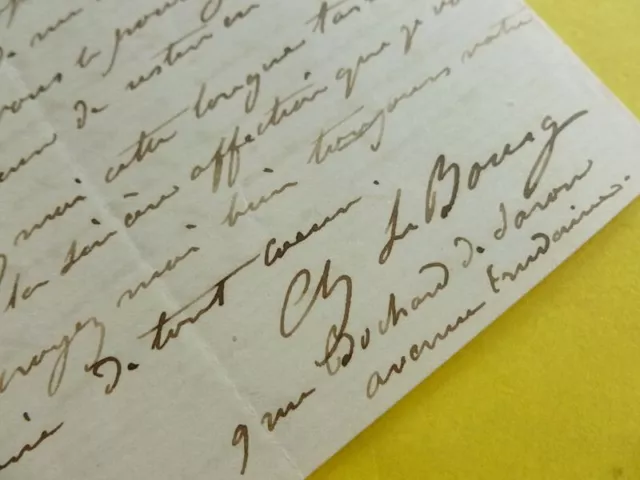 de
vous
de rester en
moi cette longue
la sincère affection que je vo
croyez moi bien toujours votre
de tout coeur.
Ch Le Bourg
9 rue Bochard de Saron
avenue Trudaine.